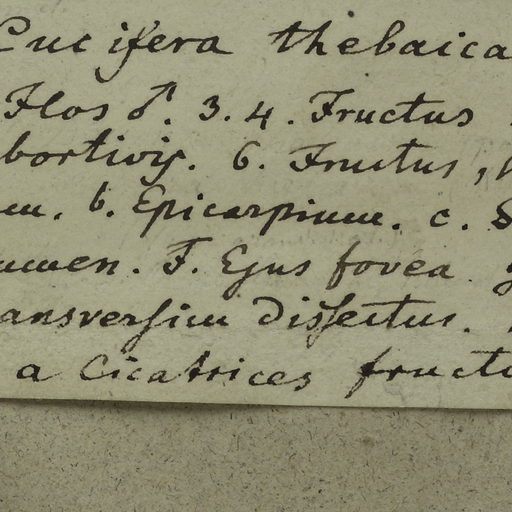 Cucifera thebaica
Flos ♂. 3. 4. Fructus
bortivis. 6. Fructus,
um. b. Epicarpium. c. S
umen. F. Ejus fovea. g
ansversim dissectus.
a Cicatrices fructu